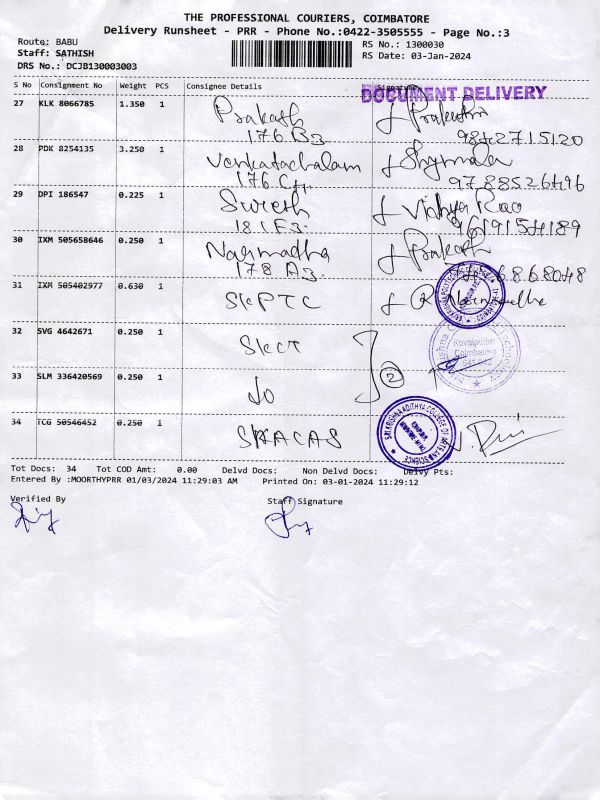 THE PROFESSIONAL COURIERS, COIMBATORE
Delivery Runsheet - PRR - Phone No.:0422-3505555 - Page No.:3
Route: BABU
Staff: SATHISH
DRS No.: DCJB130003003
RS No.: 1300030
RS Date: 03-Jan-2024
S No Consignment No Weight PCS Consignee Details Signature
DOCUMENT DELIVERY
27 KLK 8066785 1.350 1 Prakash
176.B3 9842715120
28 PDK 8254135 3.250 1 Venkatachalam Shymala
176.C4. 9788526496
29 DPI 186547 0.225 1 Suresh Vidhya Rao
181.F3. 9619154189
30 IXM 505658646 0.250 1 Narmadha Prakash
178 A3. 868048
31 IXM 505402977 0.630 1 SKPTC R. Narmadha
32 SVG 4642671 0.250 1 SKCT
Kovaipudur
Coimbatore
33 SLM 336420569 0.250 1 do 2
34 TCG 50546452 0.250 1 SKACAS
SRI KRISHNA ADITHYA COLLEGE OF ARTS AND SCIENCE
Tot Docs: 34 Tot COD Amt: 0.00 Delvd Docs: Non Delvd Docs: Delvy Pts:
Entered By :MOORTHYPRR 01/03/2024 11:29:03 AM Printed On: 03-01-2024 11:29:12
Verified By Staff Signature